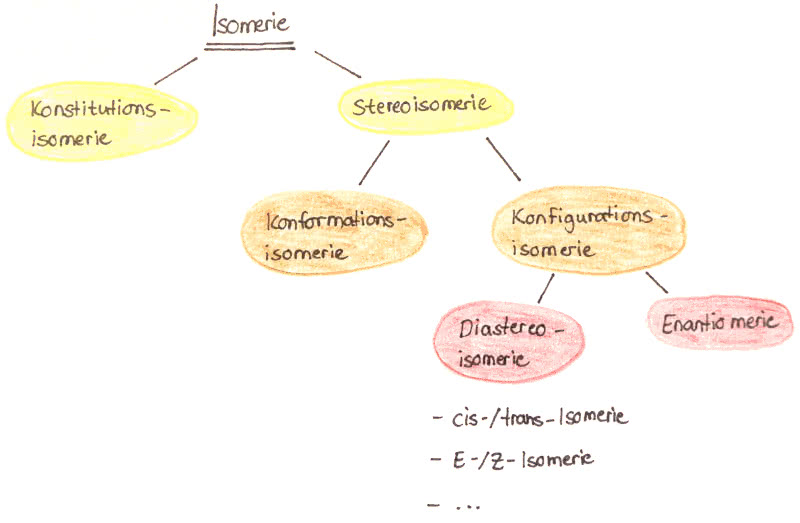 Isomerie
Konstitutions-
isomerie
Stereoisomerie
Konformations-
isomerie
Konfigurations-
isomerie
Diastereo-
isomerie
Enantiomerie
- cis-/trans-Isomerie
- E-/Z-Isomerie
- ...